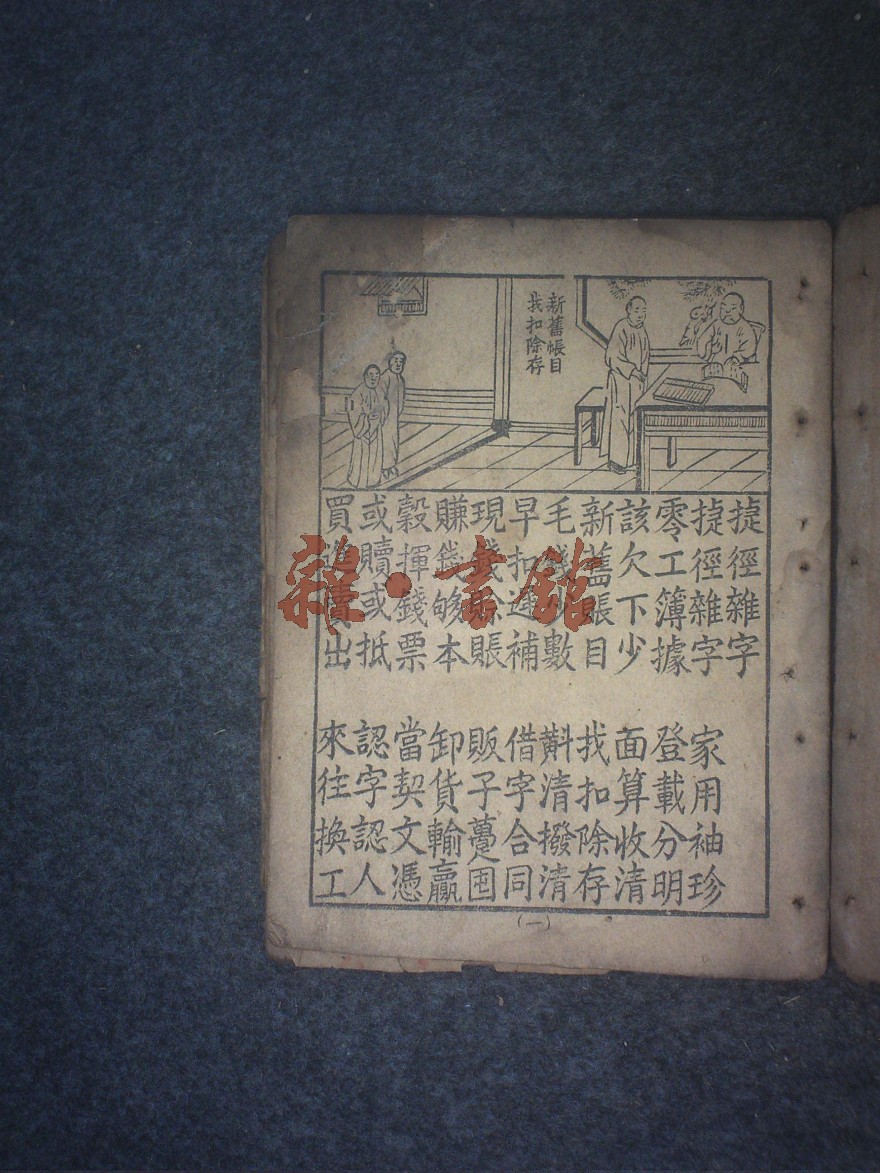 新舊帳目
找扣除存
捷徑雜字
捷徑雜字 家用袖珍
零工簿據 登載分明
該欠下少 面算收清
新舊賬目 找扣除存
毛錢少數 斢清撥清
早扣補 借字合同
現錢賒賬 販子躉囤
賺錢够本 卸貨輸贏
穀揮錢票 當契文憑
或贖或抵 認字認人
買進賣出 來往換工
(一)
雜·書館